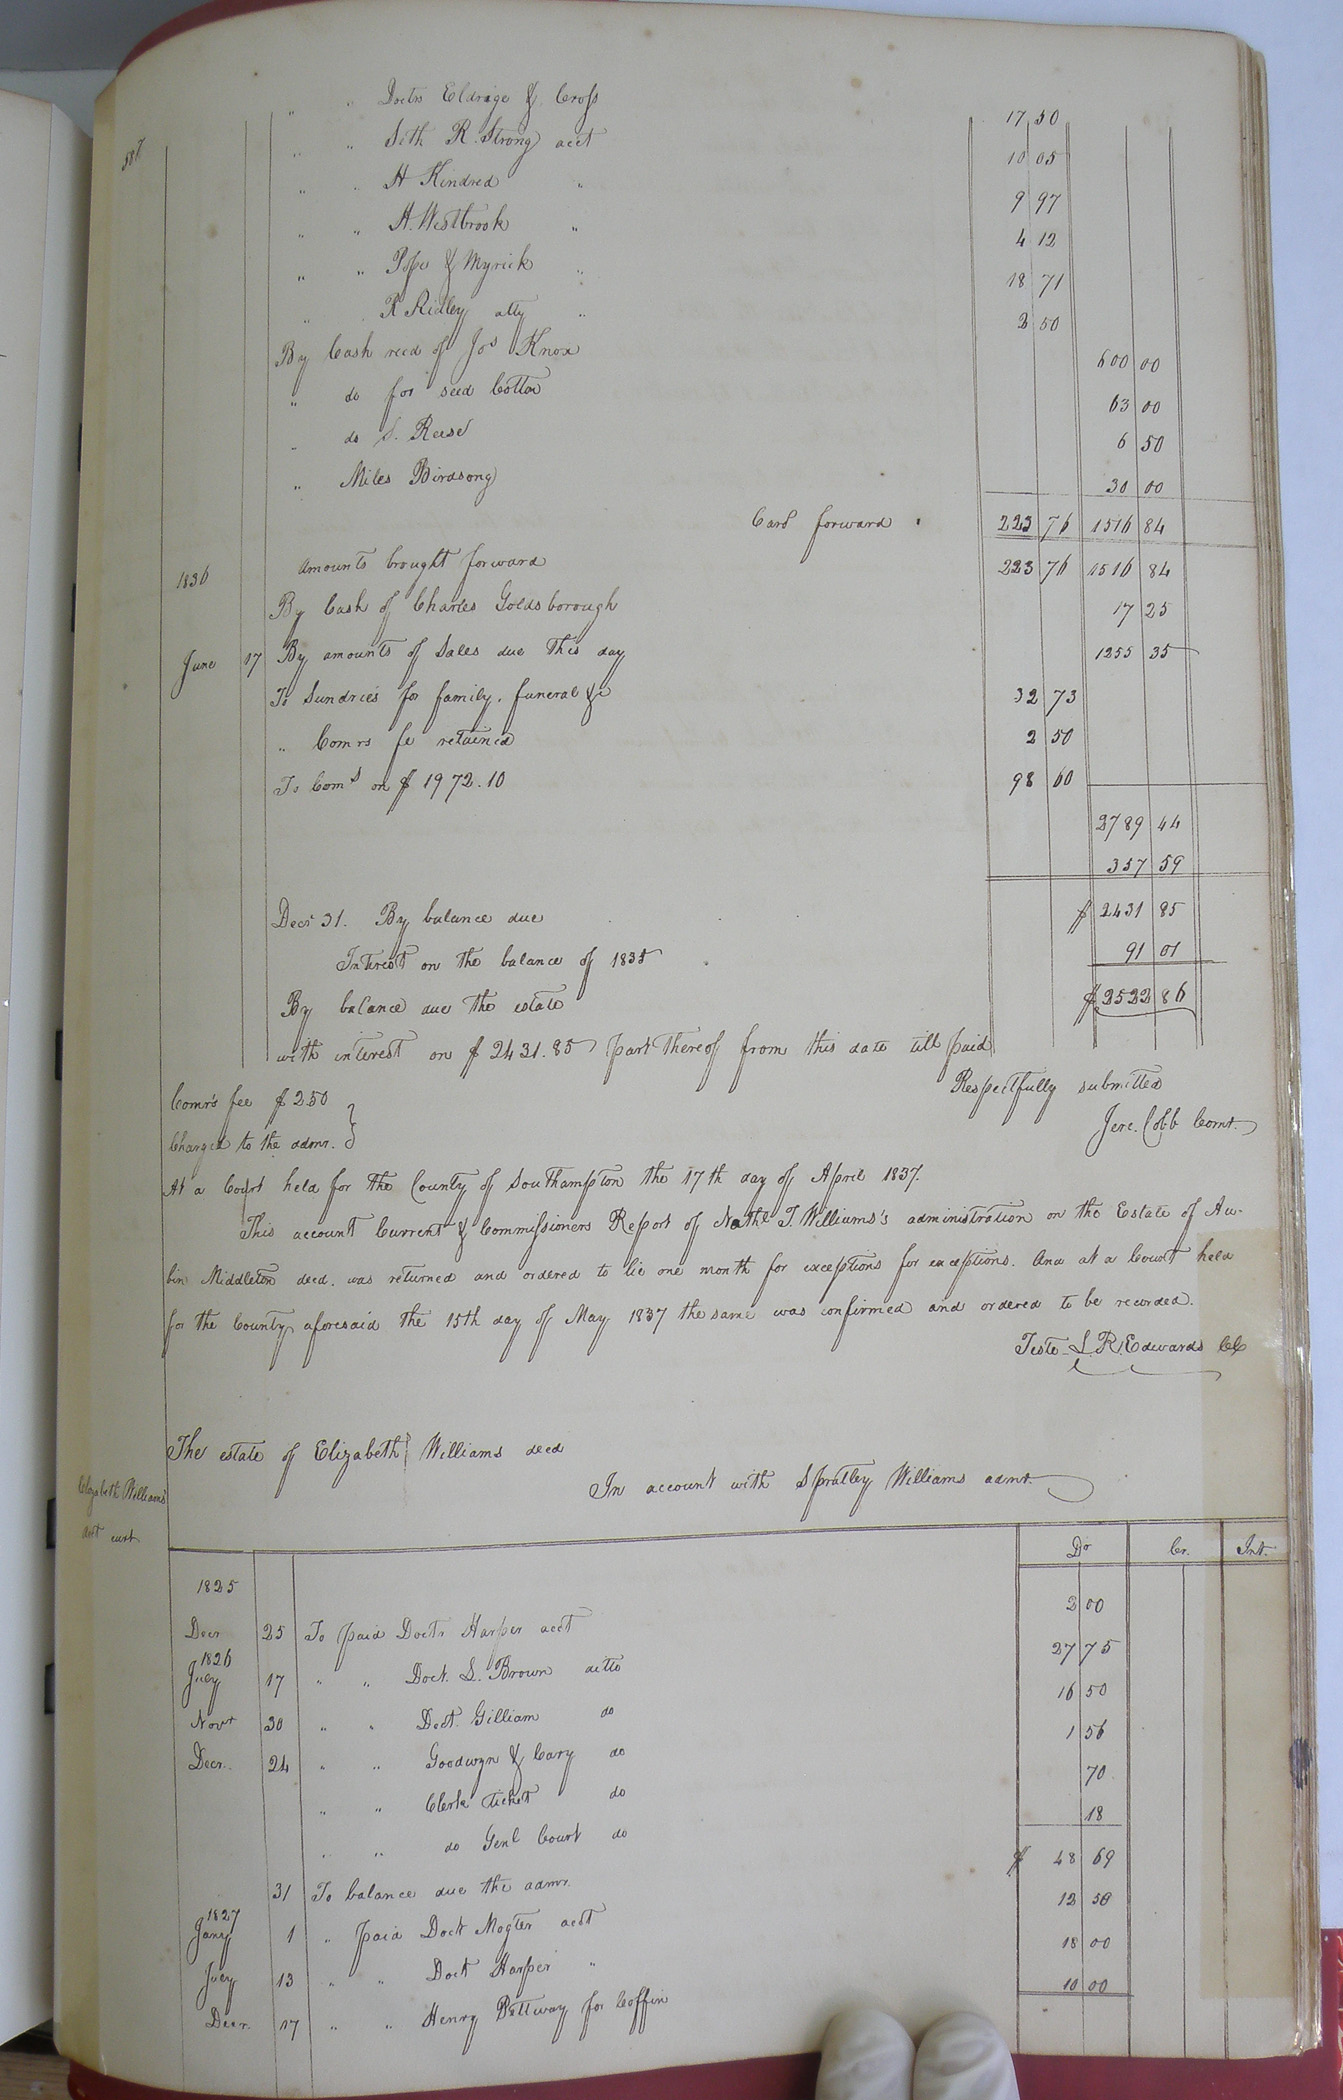 587
" " Doctrs Eldrige & Cross 17 50
" " Seth R. Strong acct 10 05
" " H Kindred " 9 97
" " H. Westbrook " 4 12
" " Pope & Myrick " 18 71
" " R Ridley atty " 2 50
By Cash recd of Jos Knox 600 00
" do for seed Cotton 63 00
" do S. Reese 6 50
" Miles Birdsong 30 00
Card forward 223 76 1516 84
1836 Amounts brought forward 223 76 1516 84
By Cash of Charles Goldsborough 17 25
June 17 By amounts of Sales due this day 1255 35
To Sundries for family, funeral &c 32 73
" Comrs fe retained 2 50
To Coms on $1972.10 98 60
2789 44
357 59
Decr 31. By balance due $ 2431 85
Interest on the balance of 1835 91 01
By balance due the estate $ 2522 86
with interest on $2431.85 part thereof from this date till paid
Respectfully submitted
Comr's fee $2.50
Jere. Cobb Comr.
Charged to the admr.
At a Court held for the County of Southampton the 17th day of April 1837.
This account Current & Commissioners Report of Nathl T. Williams's administration on the Estate of Au-
bin Middleton decd. was returned and ordered to lie one month for exceptions for exceptions. And at a Court held
for the County aforesaid the 15th day of May 1837 the same was confirmed and ordered to be recorded.
Teste L. R. Edwards CC
The estate of Elizabeth Williams decd
In account with Spratley Williams admr.
Elizabeth Williams's
Acct curt.
Dr Cr. Int.
1825
Decr 25 To paid Doctr Harper acct 2 00
1826
July 17 " " Doct. L. Brown ditto 27 75
Novr 30 " " Doct. Gilliam do 16 50
Decr. 24 " " Goodwyn & Cary do 1 56
" " Clerk Ticket do 70
" " do Genl Court do 18
31 To balance due the admr. $ 48 69
1827
Jany 1 " paid Doct acct 12 50
July 13 " " Doct Harper " 18 00
Decr. 17 " " Henry Pettway for Coffin 10 00